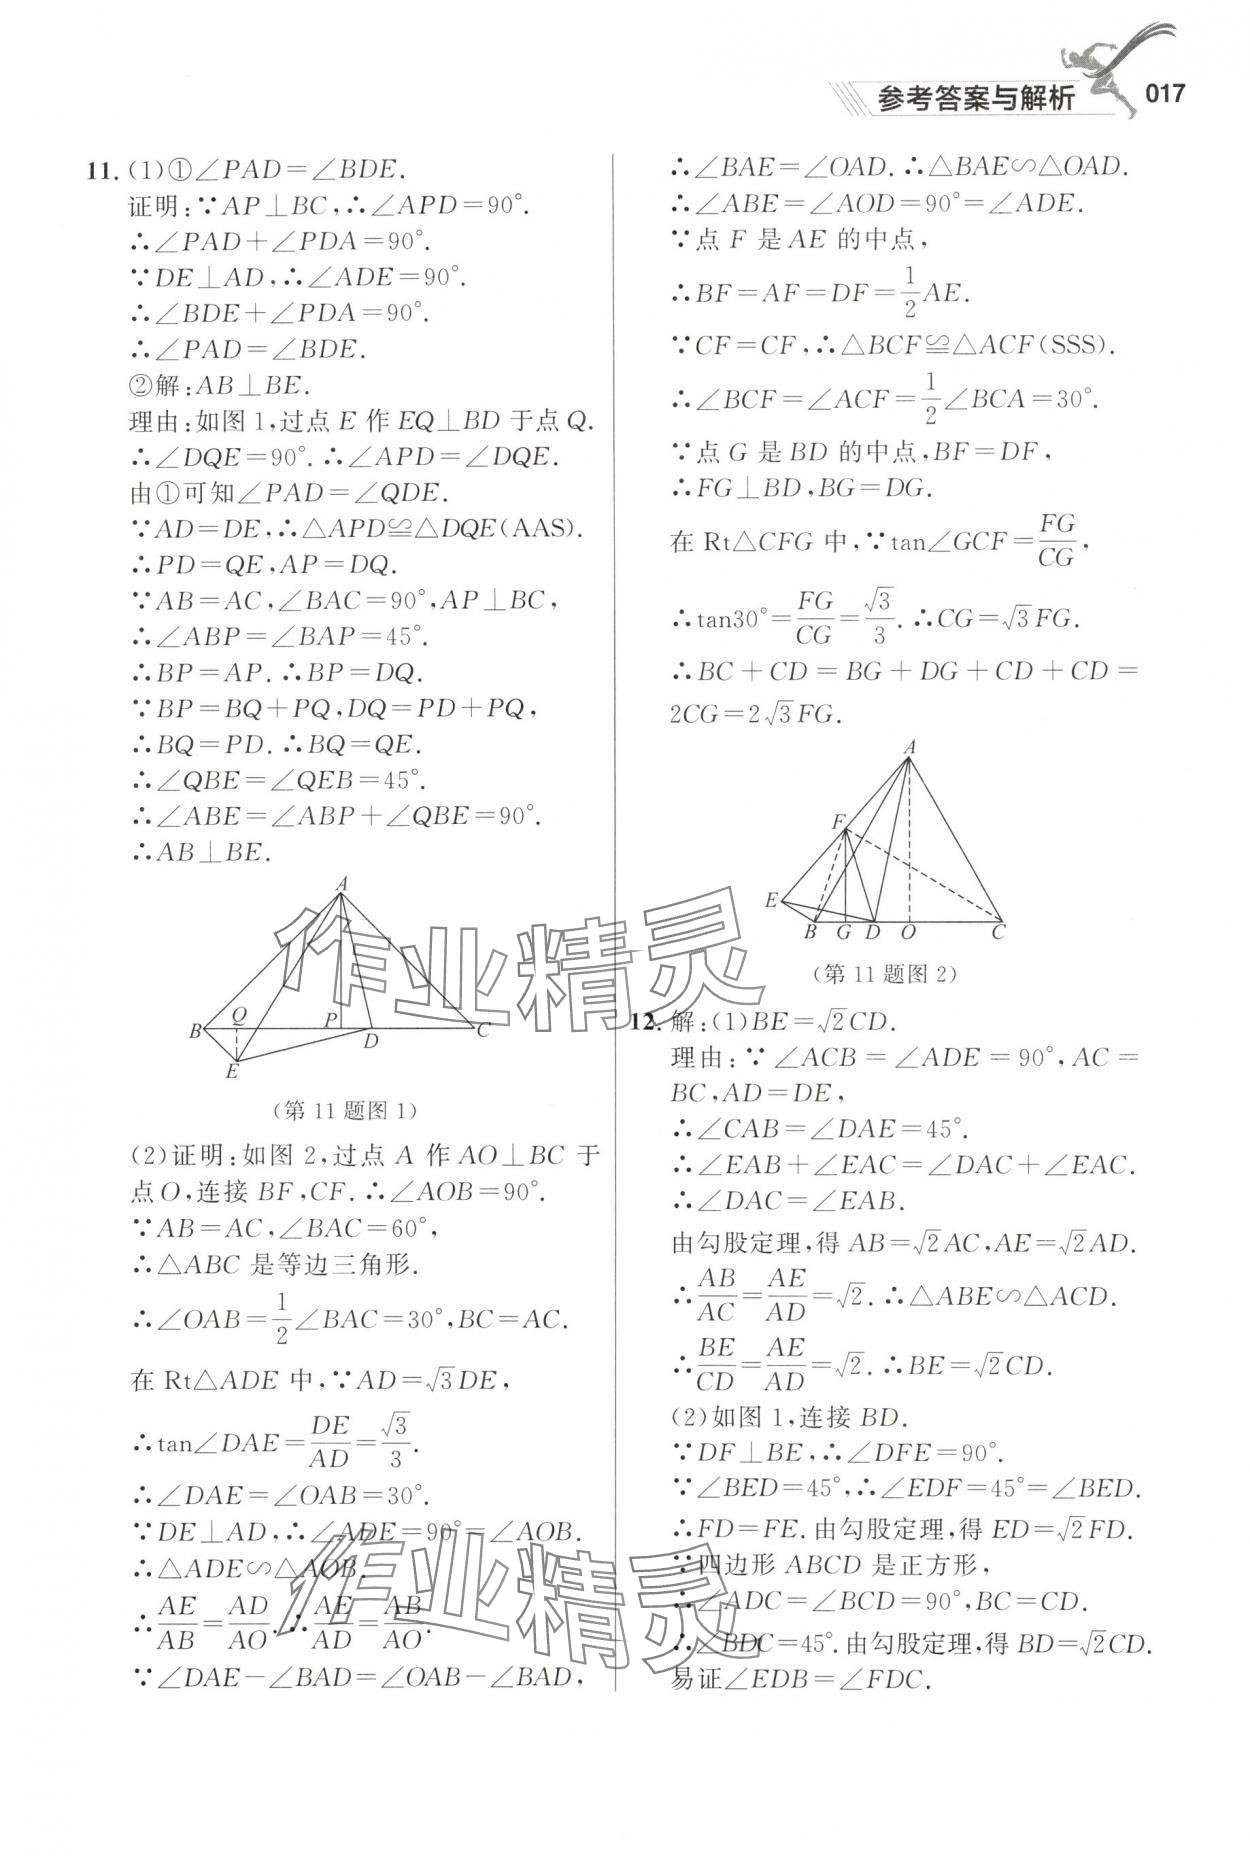 参考答案与解析 017
11. (1)①∠PAD=∠BDE.
证明:∵AP⊥BC,∴∠APD=90°.
∴∠PAD+∠PDA=90°.
∵DE⊥AD,∴∠ADE=90°.
∴∠BDE+∠PDA=90°.
∴∠PAD=∠BDE.
②解:AB⊥BE.
理由:如图1,过点E作EQ⊥BD于点Q.
∴∠DQE=90°.∴∠APD=∠DQE.
由①可知∠PAD=∠QDE.
∵AD=DE,∴△APD≌△DQE(AAS).
∴PD=QE,AP=DQ.
∵AB=AC,∠BAC=90°,AP⊥BC,
∴∠ABP=∠BAP=45°.
∴BP=AP.∴BP=DQ.
∵BP=BQ+PQ,DQ=PD+PQ,
∴BQ=PD.∴BQ=QE.
∴∠QBE=∠QEB=45°.
∴∠ABE=∠ABP+∠QBE=90°.
∴AB⊥BE.
A
B Q P D C
E
(第11题图1)
(2)证明:如图2,过点A作AO⊥BC于
点O,连接BF,CF.∴∠AOB=90°.
∵AB=AC,∠BAC=60°,
∴△ABC是等边三角形.
∴∠OAB=1/2∠BAC=30°,BC=AC.
在Rt△ADE中,∵AD=√3DE,
∴tan∠DAE=DE/AD=√3/3.
∴∠DAE=∠OAB=30°.
∵DE⊥AD,∴∠ADE=90°=∠AOB.
∴△ADE∽△AOB.
∴AE/AB=AD/AO.∴AE/AD=AB/AO.
∵∠DAE−∠BAD=∠OAB−∠BAD,
∴∠BAE=∠OAD.∴△BAE∽△OAD.
∴∠ABE=∠AOD=90°=∠ADE.
∵点F是AE的中点,
∴BF=AF=DF=1/2AE.
∵CF=CF,∴△BCF≌△ACF(SSS).
∴∠BCF=∠ACF=1/2∠BCA=30°.
∵点G是BD的中点,BF=DF,
∴FG⊥BD,BG=DG.
在Rt△CFG中,∵tan∠GCF=FG/CG,
∴tan30°=FG/CG=√3/3.∴CG=√3FG.
∴BC+CD=BG+DG+CD+CD=
2CG=2√3FG.
A
F
E
B G D O C
(第11题图2)
12. 解:(1)BE=√2CD.
理由:∵∠ACB=∠ADE=90°,AC=
BC,AD=DE,
∴∠CAB=∠DAE=45°.
∴∠EAB+∠EAC=∠DAC+∠EAC.
∴∠DAC=∠EAB.
由勾股定理,得AB=√2AC,AE=√2AD.
∴AB/AC=AE/AD=√2.∴△ABE∽△ACD.
∴BE/CD=AE/AD=√2.∴BE=√2CD.
(2)如图1,连接BD.
∵DF⊥BE,∴∠DFE=90°.
∵∠BED=45°,∴∠EDF=45°=∠BED.
∴FD=FE.由勾股定理,得ED=√2FD.
∵四边形ABCD是正方形,
∴∠ADC=∠BCD=90°,BC=CD.
∴∠BDC=45°.由勾股定理,得BD=√2CD.
易证∠EDB=∠FDC.
作业精灵
作业精灵